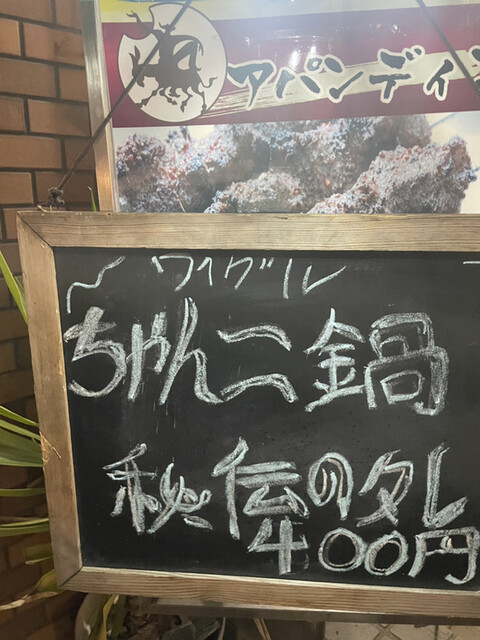 アパンディ
ワイグル
ちゃんこ鍋
秘伝のタレ
400円